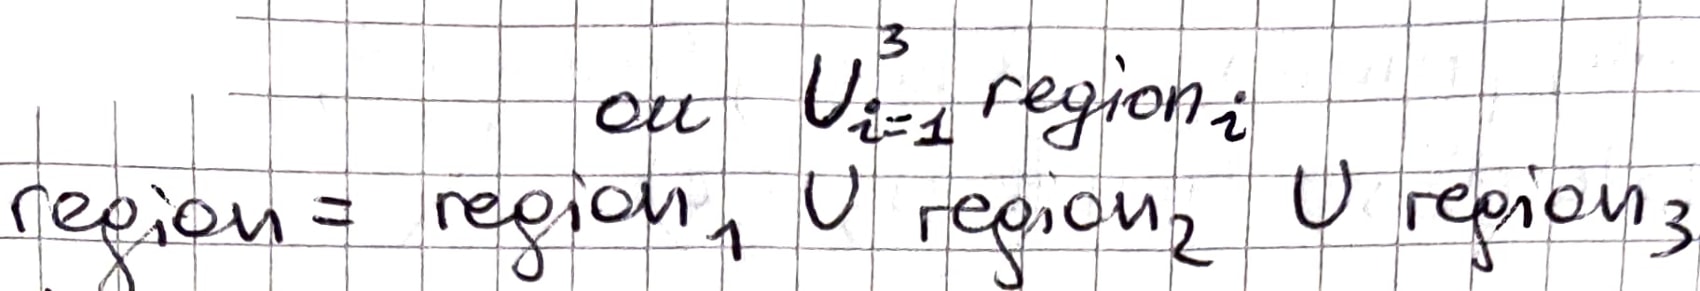 ou ⋃_{i=1}^{3} region_i
region = region_1 ∪ region_2 ∪ region_3